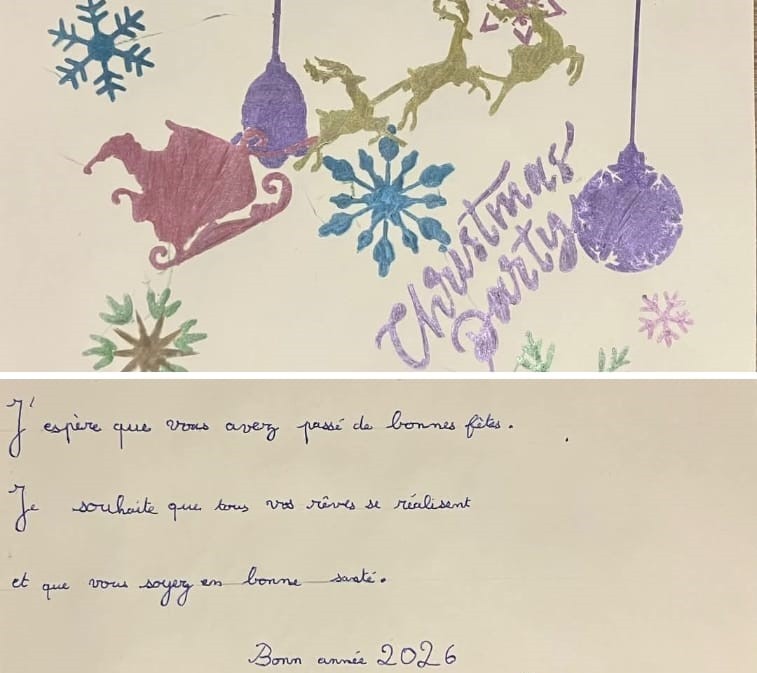 Christmas
party
J'espère que vous avez passé de bonnes fêtes.
Je souhaite que tous vos rêves se réalisent
et que vous soyez en bonne santé.
Bonn année 2026